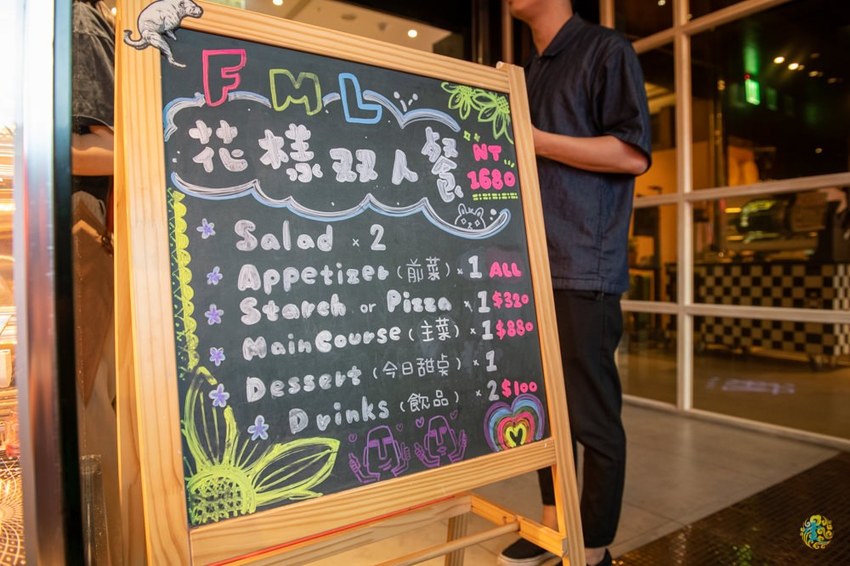 FML
花樣双人餐
NT
1680
Salad × 2
Appetizer (前菜) × 1 ALL
Starch or Pizza × 1 $320
Main Course (主菜) × 1 $880
Dessert (今日甜桌) × 1
Drinks (飲品) × 2 $100